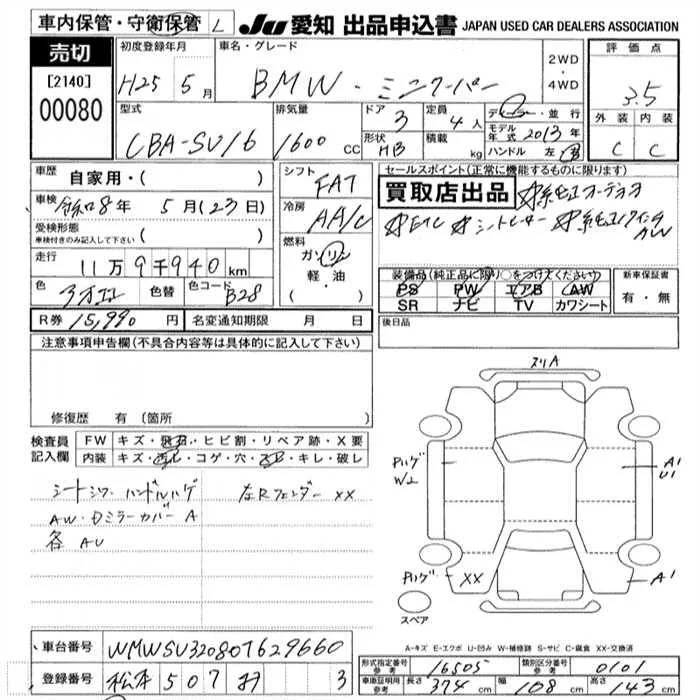 車内保管・守衛保管 L JU 愛知 出品申込書 JAPAN USED CAR DEALERS ASSOCIATION
売切
[2140]
00080
初度登録年月
H25 5月
車名・グレード
BMW・ミニクーパー
2WD
・
4WD
評価点
3.5
外装 内装
C C
型式
CBA-SU16
排気量
1600 cc
ドア 3
形状 HB
定員 4人
積載 kg
ディーラー・並行
モデル年式 2013年
ハンドル 左・右
車歴 自家用・( )
車検 令和8年 5月(23日)
受検形態
車検付きのみ記入して下さい ( )
走行 11万9千940km
色 色替 色コード B28
シフト FAT
冷房 AA/C
燃料
ガソリン
軽・油
( ・ )
セールスポイント(正常に機能するものに限ります)
買取店出品 純正オーディオ
ETC シートヒーター 純正17インチ
AW
装備品(純正品に限り○をつけてください)
PS PW エアB AW
SR ナビ TV カワシート
新車保証書
有・無
R券 15,990円 名変通知期限 月 日
後日品
注意事項申告欄(不具合内容等は具体的に記入して下さい)
修復歴 有〔箇所 〕
検査員記入欄
FW キズ・飛石・ヒビ割・リペア跡・X要
内装 キズ・汚レ・コゲ・穴・スレ・キレ・破レ
シートシワ ハンドルハゲ 左Rフェンダー XX
AW・Dミラーカバー A
各 AU
スリA
Pハゲ
W2
A1
U1
Pハゲ XX
A1
スペア
A-キズ E-エクボ U-凹み W-補修跡 S-サビ C-腐食 XX-交換済
車台番号 WMWSU320807629660
登録番号 松本 507 3
形式指定番号 参考 16505 類別区分番号 参考 0101
車庫証明用 参考 長さ 374cm 幅 168cm 高さ 143cm